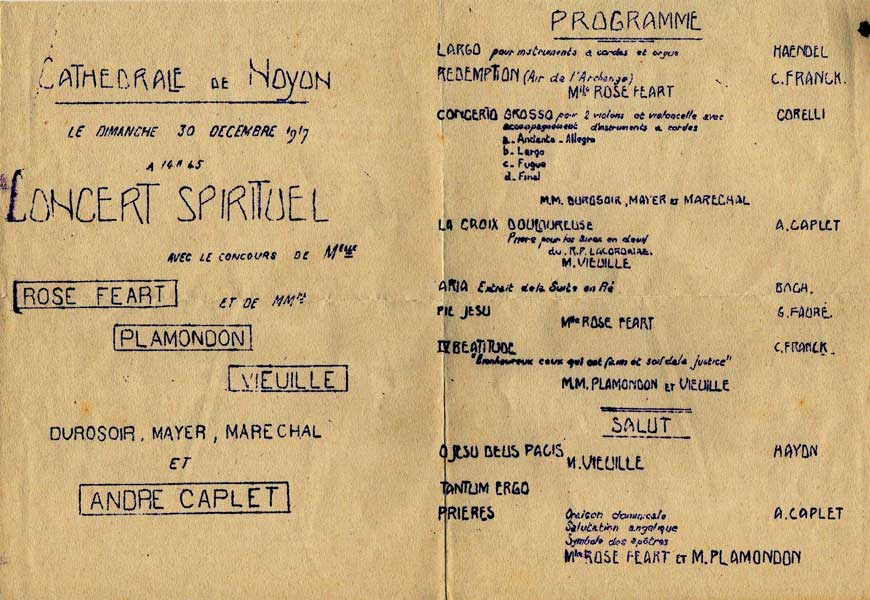 CATHEDRALE DE NOYON
LE DIMANCHE 30 DECEMBRE 1917
A 14H45
CONCERT SPIRITUEL
AVEC LE CONCOURS DE Melle
ROSE FEART ET DE MMrs
PLAMONDON
VIEUILLE
DUROSOIR, MAYER, MARECHAL
ET
ANDRE CAPLET
PROGRAMME
LARGO pour instruments a cordes et orgue HAENDEL
REDEMPTION (Air de l'Archange) C. FRANCK.
Mlle ROSE FEART
CONCERTO GROSSO pour 2 violons et violoncelle avec CORELLI
accompagnement d'instruments a cordes
a_ Andante _ Allegro
b_ Largo
c_ Fugue
d_ Final
M.M. DUROSOIR, MAYER et MARECHAL
LA CROIX DOULOUREUSE A. CAPLET
Priere pour les âmes en deuil
du R.P. LACORDAIRE.
M. VIEUILLE
ARIA Extrait de la Suite en Ré BACH.
PIE JESU G. FAURÉ.
Mlle ROSE FEART
IV BEATITUDE C. FRANCK.
"Bienheureux ceux qui ont faim et soif de la justice"
M.M. PLAMONDON ET VIEUILLE
SALUT
O JESU DEUS PACIS HAYDN
M. VIEUILLE
TANTUM ERGO
PRIERES Oraison dominicale A. CAPLET
Salutation angelique
Symbole des apôtres
Mlle ROSE FEART ET M. PLAMONDON